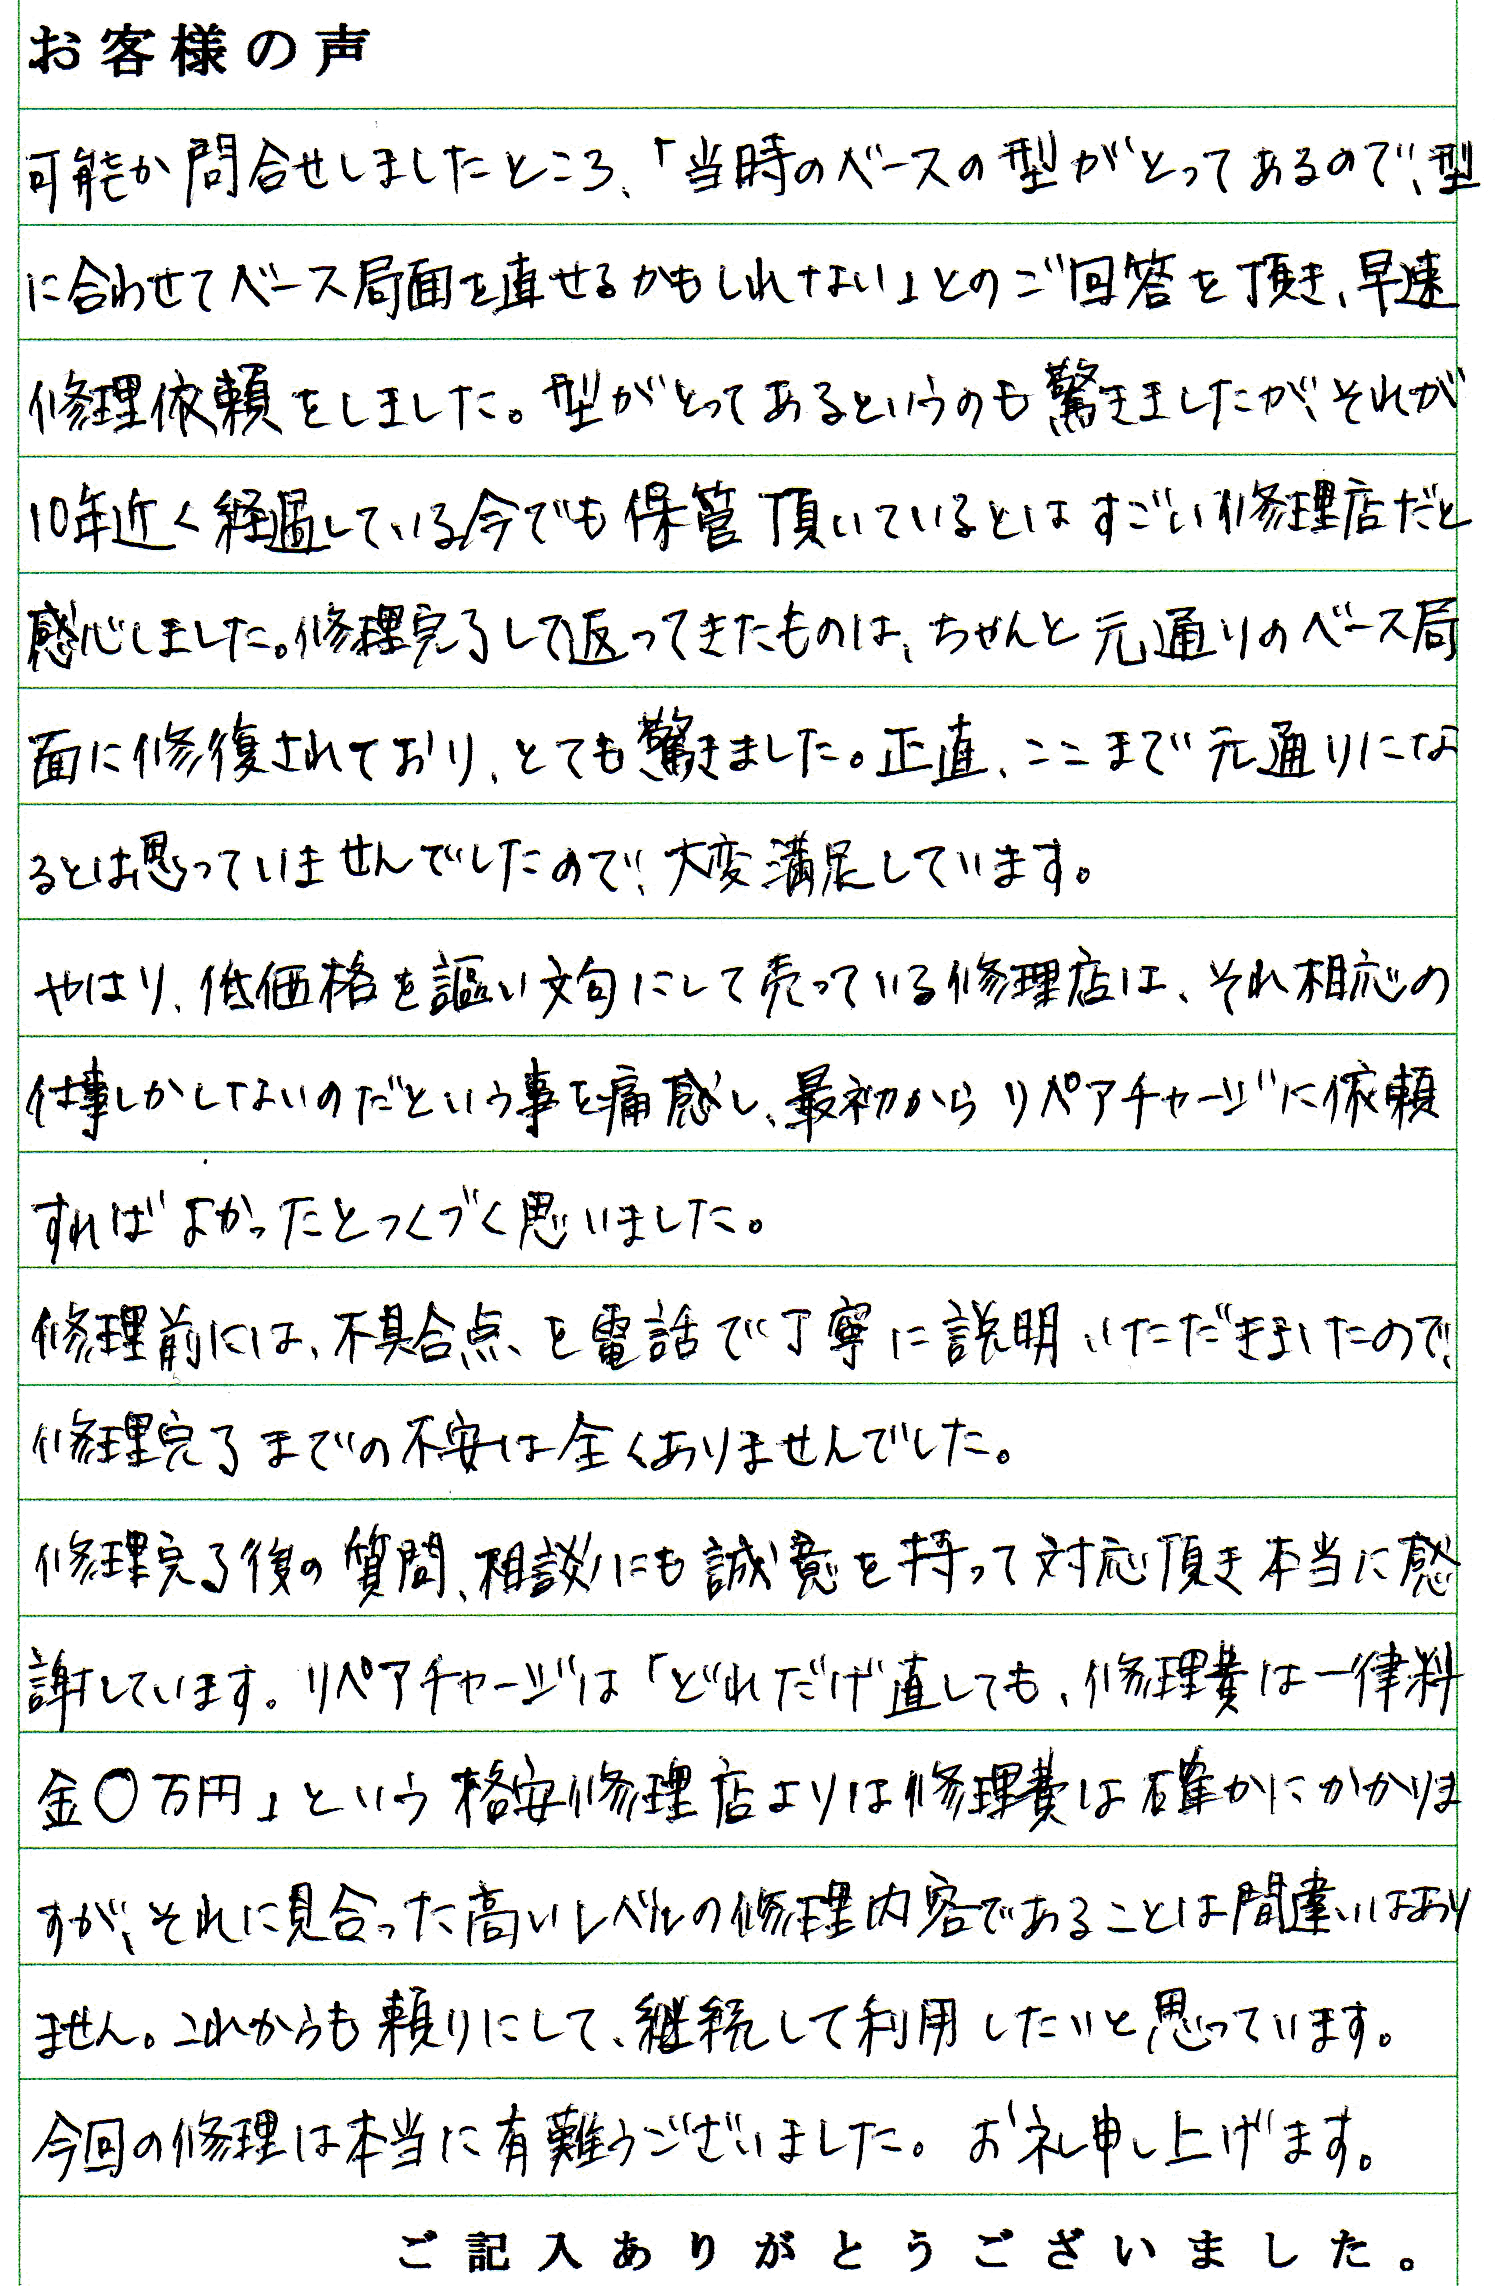 お客様の声
可能か問合せしましたところ、「当時のベースの型がとってあるので、型
に合わせてベース局面を直せるかもしれない」とのご回答を頂き、早速
修理依頼をしました。型がとってあるというのも驚きましたが、それが
10年近く経過している今でも保管頂いているとはすごい修理店だと
感心しました。修理完了して返ってきたものは、ちゃんと元通りのベース局
面に修復されており、とても驚きました。正直、ここまで元通りにな
るとは思っていませんでしたので、大変満足しています。
やはり、低価格を謳い文句にして売っている修理店は、それ相応の
仕事しかしないのだという事を痛感し、最初からリペアチャージに依頼
すればよかったとつくづく思いました。
修理前には、不具合点を電話で丁寧に説明いただきましたので、
修理完了までの不安は全くありませんでした。
修理完了後の質問、相談にも誠意を持って対応頂き本当に感
謝しています。リペアチャージは「どれだけ直しても、修理費は一律料
金〇万円」という格安修理店よりは修理費は確かにかかりま
すが、それに見合った高いレベルの修理内容であることは間違いはあり
ません。これからも頼りにして、継続して利用したいと思っています。
今回の修理は本当に有難うございました。お礼申し上げます。
ご記入ありがとうございました。